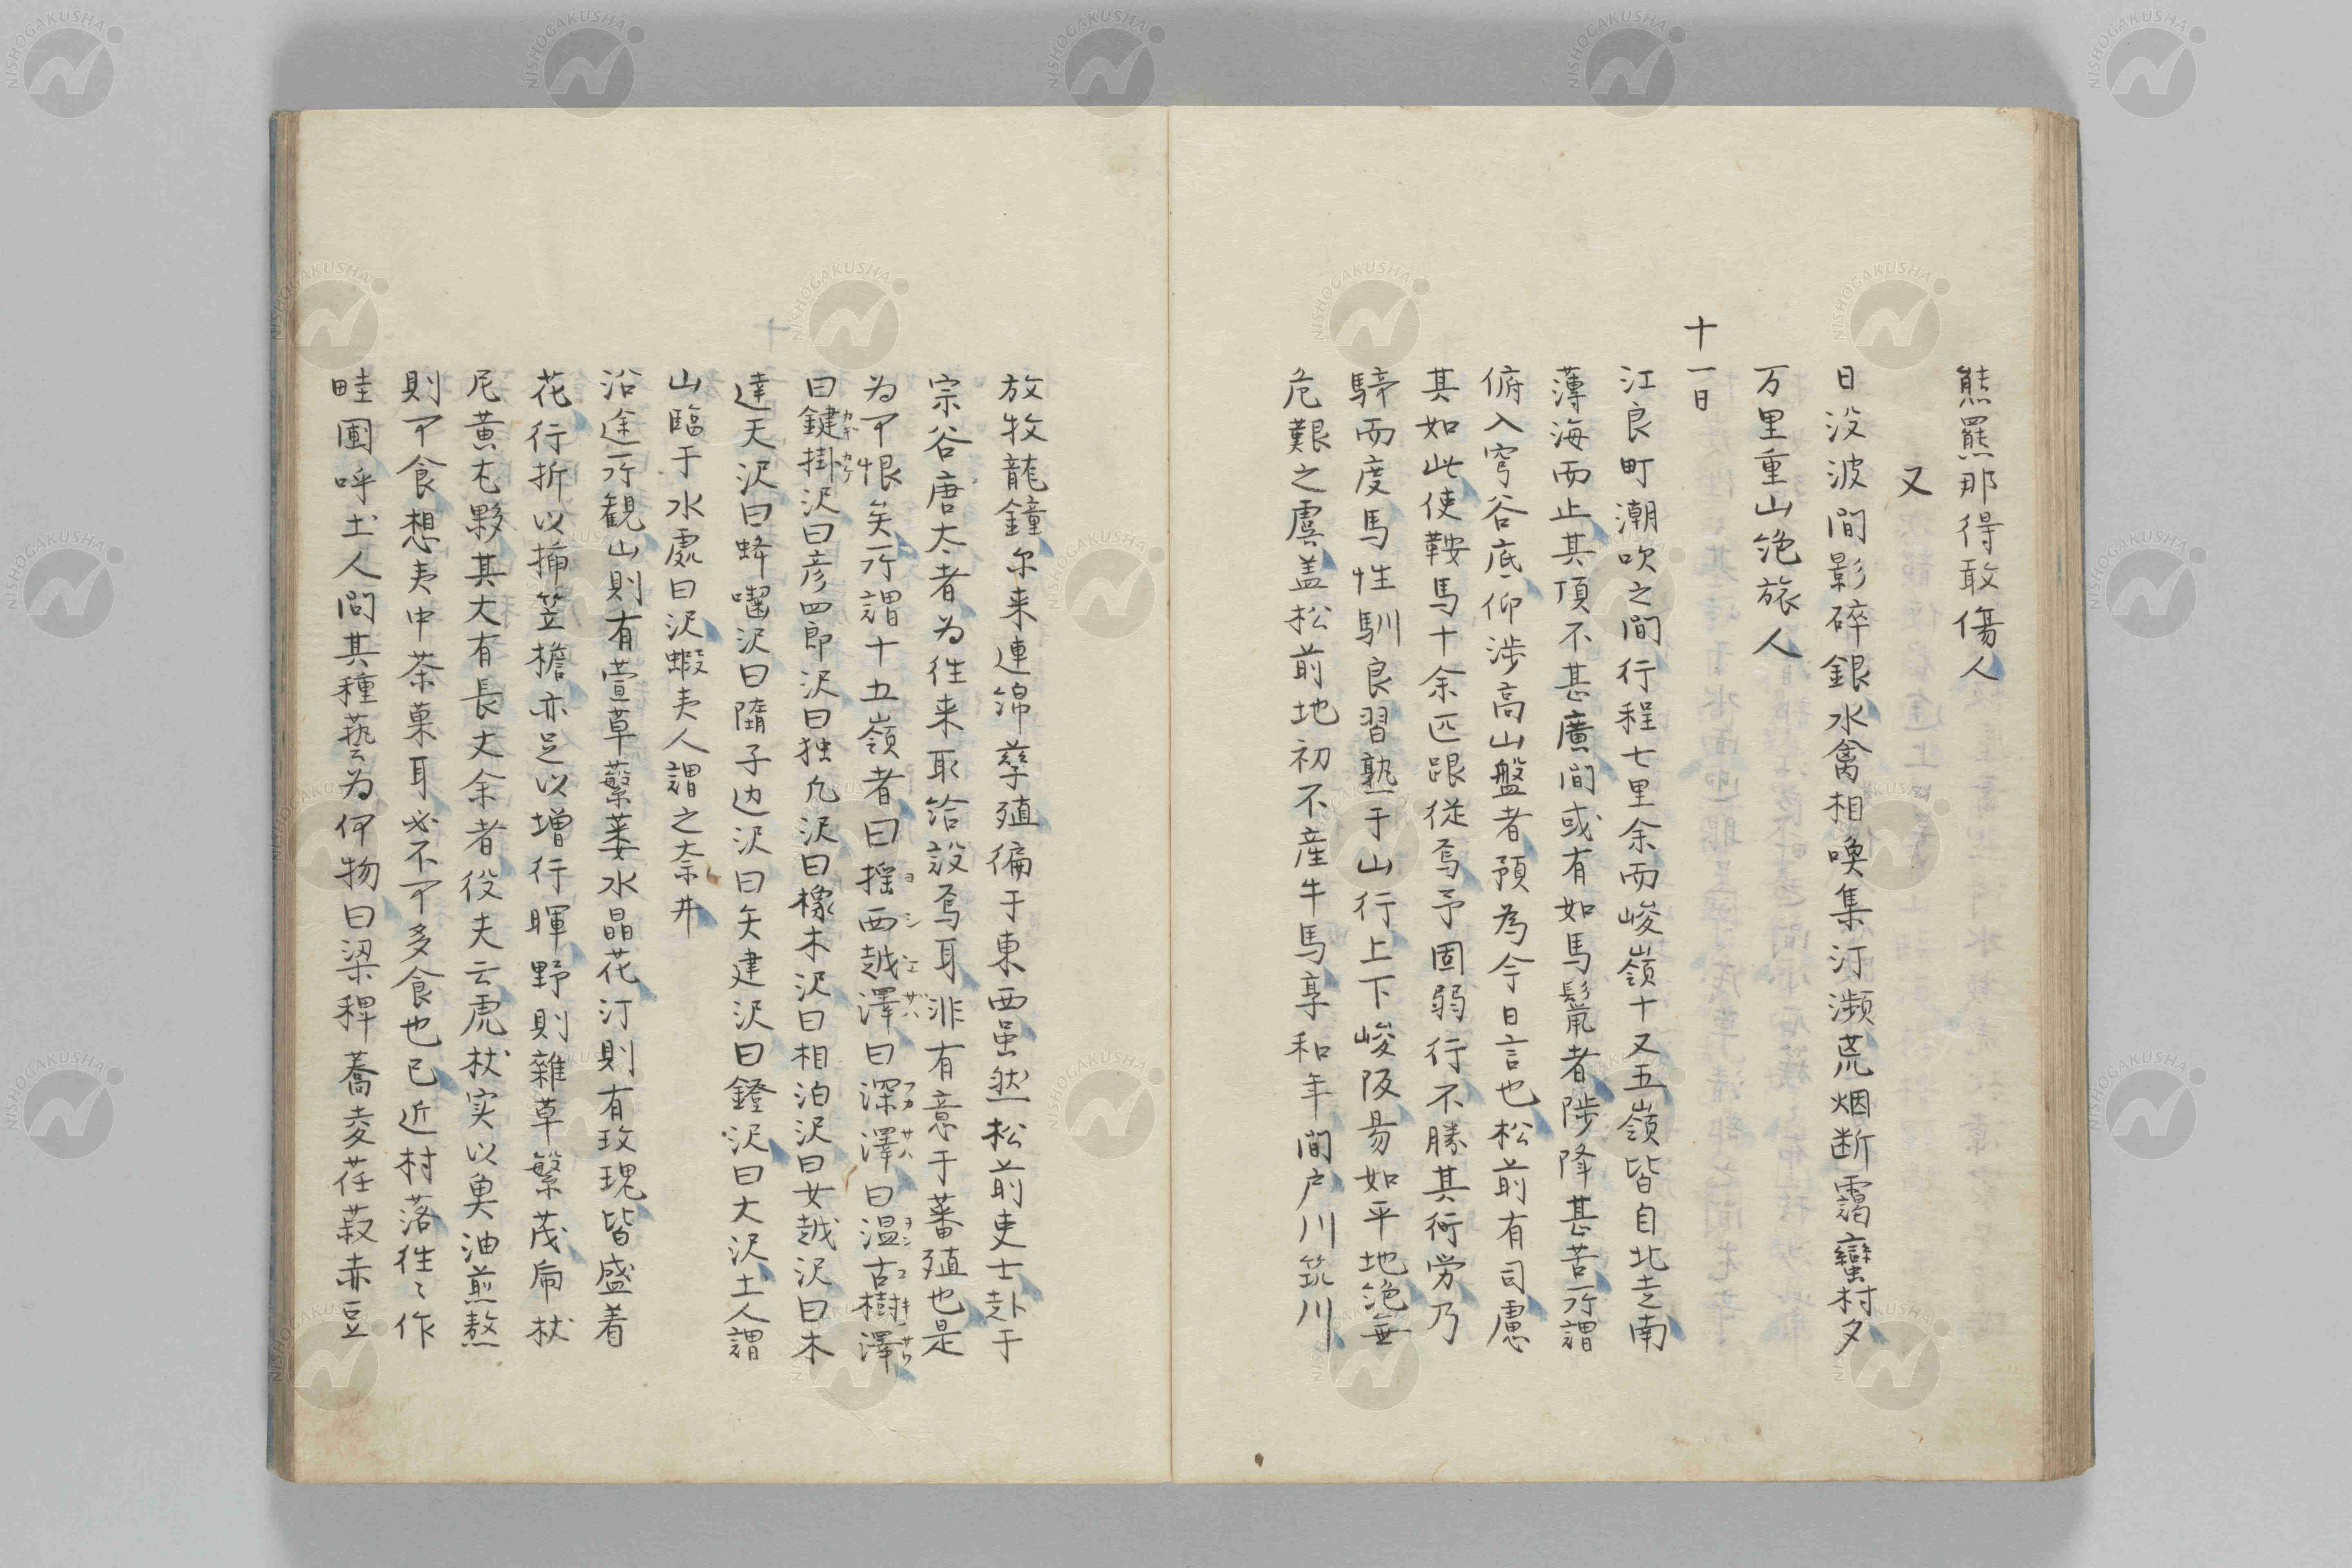 熊羆那得敢傷人
又
日没波間影砕銀水禽相喚集汀瀕荒烟断靄蠻村夕
万里重山絶旅人
十一日
江良町潮吹之間行程七里余而峻嶺十又五嶺皆自北走南
薄海而止其頂不甚廣間或有如馬鬣者陟降甚苦所謂
俯入穹谷底仰渉高山盤者預為今日言也松前有司慮
其如此使鞍馬十余匹跟従焉予固弱行不勝其衕労乃
騎而度馬性馴良習熟于山行上下峻阪易如平地絶無
危艱之虞盖松前地初不産牛馬享和年間戸川筑川
放牧龍鐘尓来連綿孳殖徧于東西虽然松前吏士赴于
宗谷唐太者為往来取給設焉耳非有意于蕃殖也是
為可恨矣所謂十五嶺者曰揺西越澤曰深澤曰温古樹澤
曰鍵掛沢曰彦四郎沢曰独凢沢曰橡木沢曰相泊沢曰女越沢曰木
達天沢曰蜂囓沢曰隋子辺沢曰矢建沢曰鐙沢曰大沢土人謂
山臨于水處曰沢蝦夷人謂之奈井
沿途所観山則有萱草蘩蒌水晶花汀則有玫瑰皆盛着
花行折以挿笠檐亦足以増行暉野則雜草繁茂虎杖
尼黄乇夥其大有長丈余者役夫云虎杖実以魚油煎熬
則可食想夷中茶菓耳必不可多食也已近村落往〻作
畦圃呼土人問其種藝為何物曰梁稗蕎麦荏菽赤豆
ヨシエザハ
フカサハ
ヲンコキサワ
カギカケ